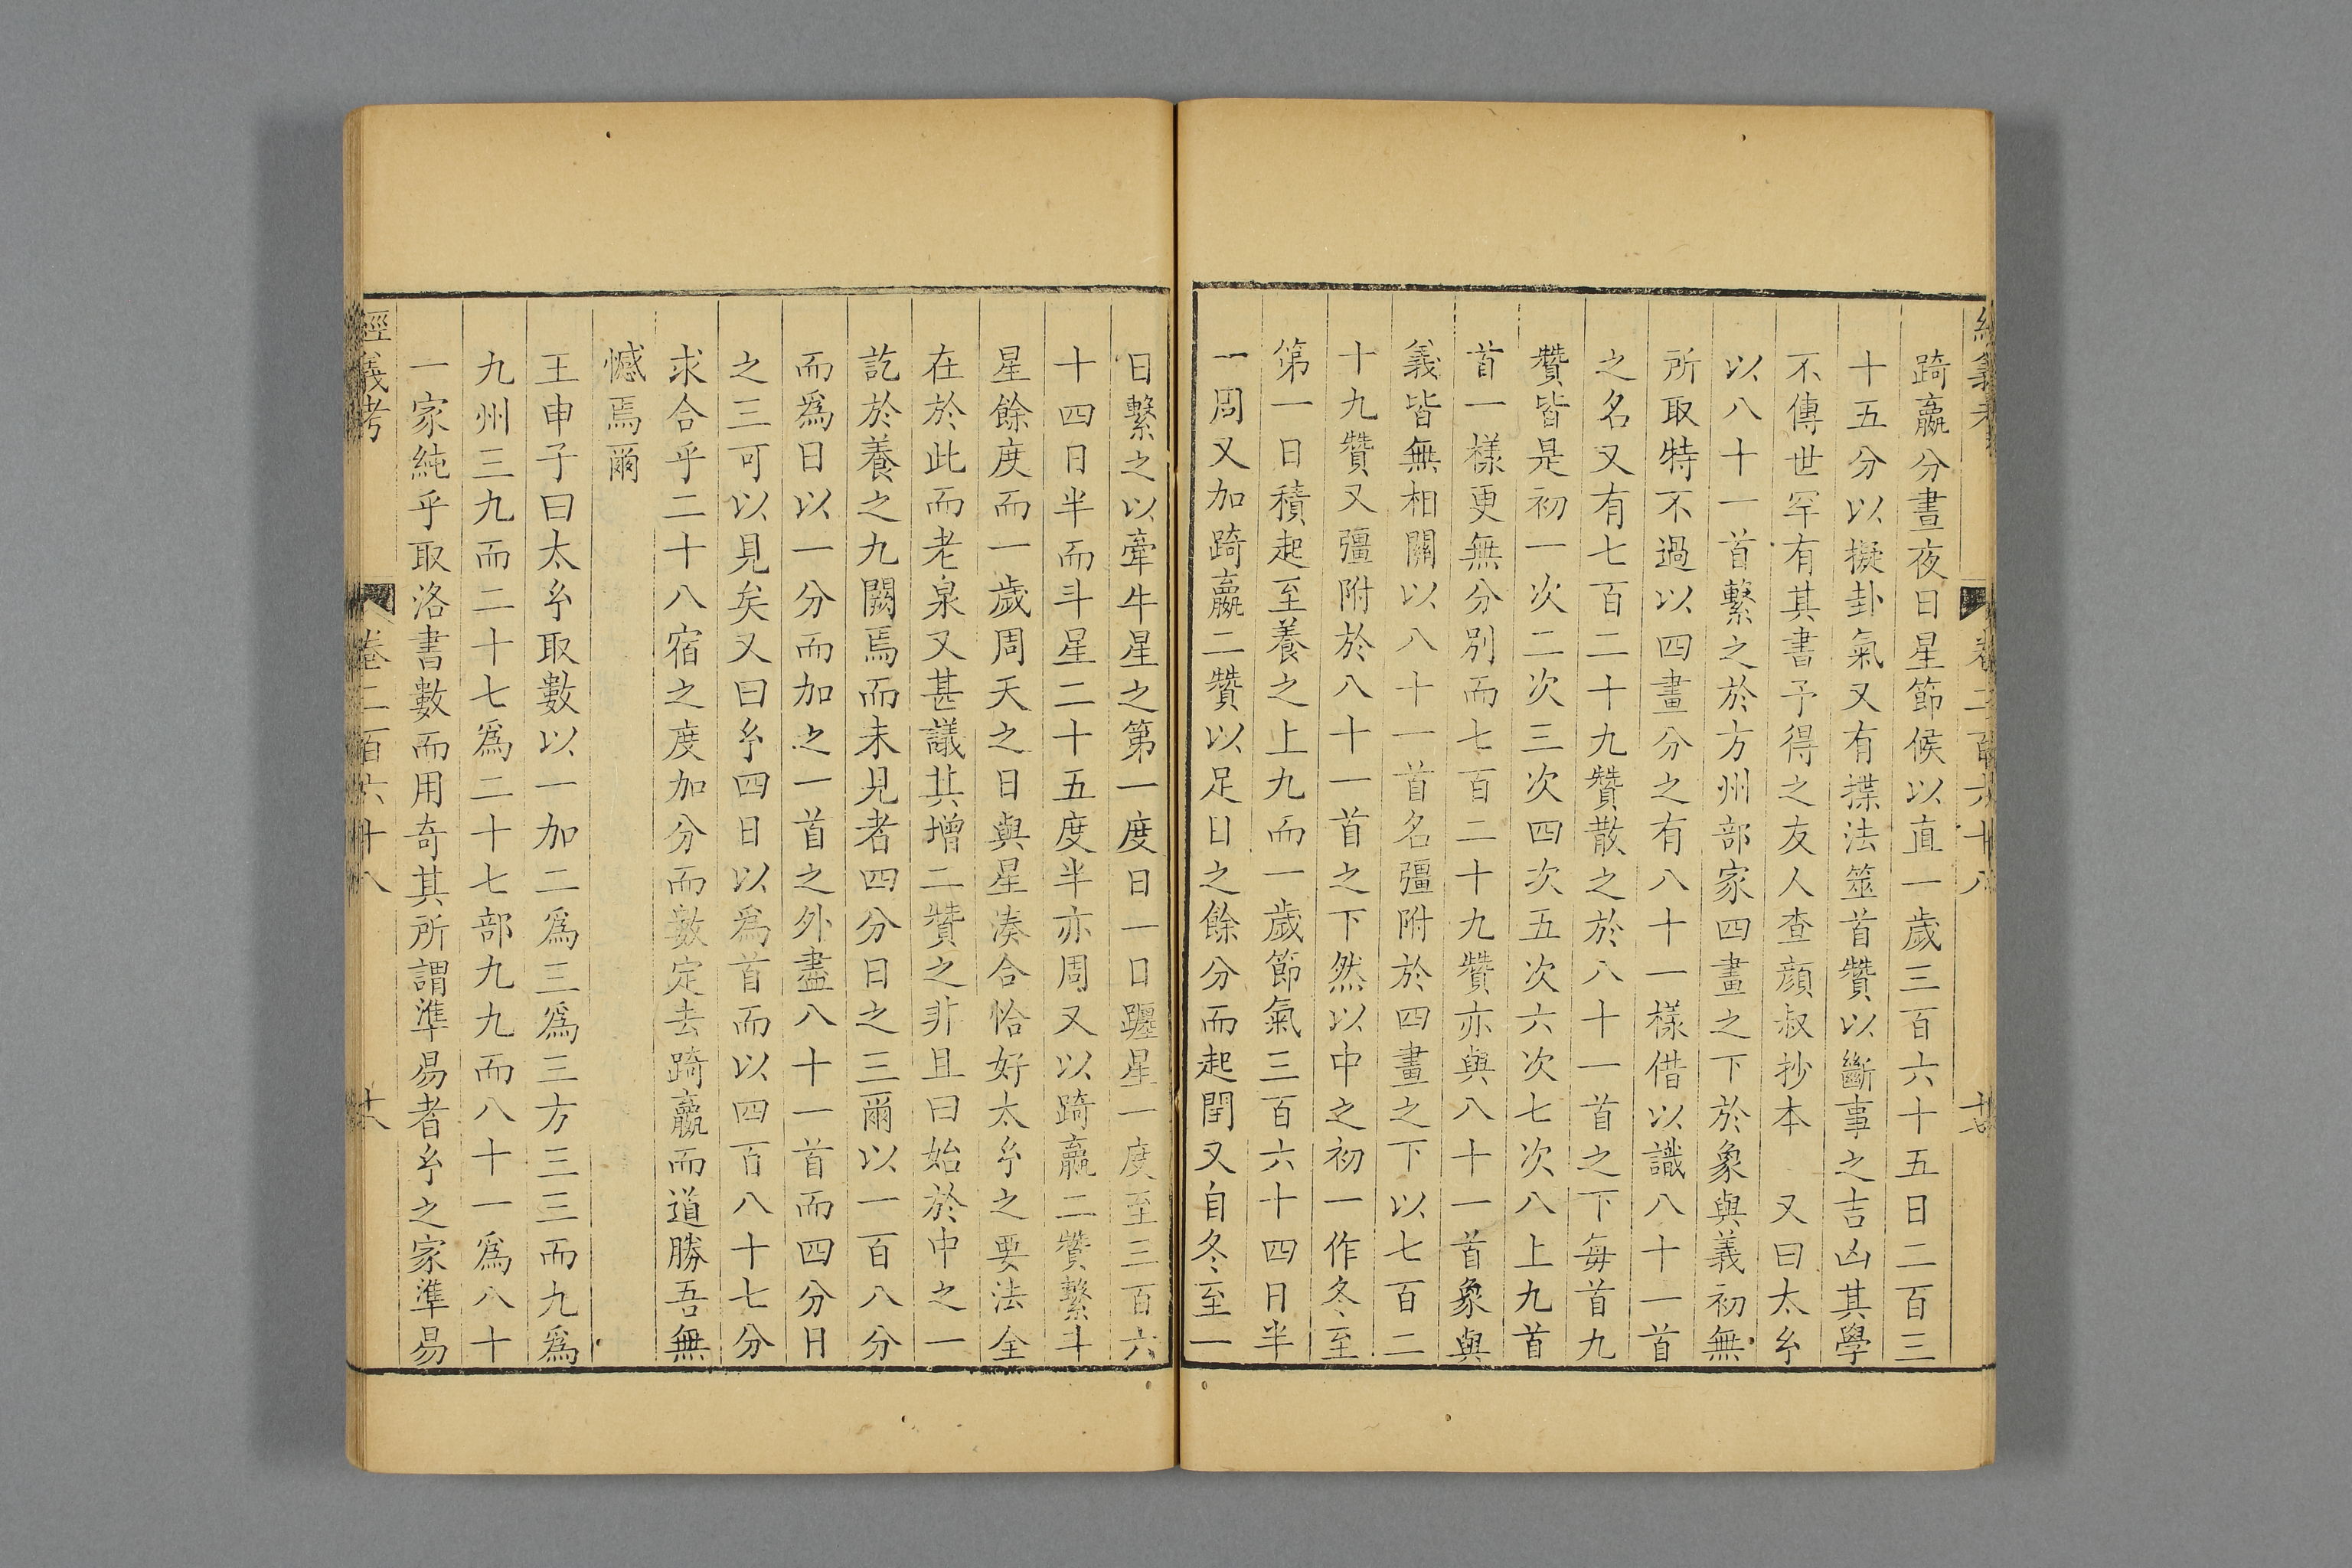 經義考 卷二百六十八 廿七
踦嬴分晝夜日星節候以直一歲三百六十五日二百三
十五分以擬卦氣又有揲法筮首贊以斷事之吉凶其學
不傳世罕有其書予得之友人查顔叔抄本 又曰太𤣥
以八十一首繫之於方州部家四畫之下於象與義初無
所取特不過以四畫分之有八十一樣借以識八十一首
之名又有七百二十九贊散之於八十一首之下每首九
贊皆是初一次二次三次四次五次六次七次八上九首
首一樣更無分別而七百二十九贊亦與八十一首象與
義皆無相關以八十一首名彊附於四畫之下以七百二
十九贊又彊附於八十一首之下然以中之初一作冬至
第一日積起至養之上九而一歲節氣三百六十四日半
一周又加踦嬴二贊以足日之餘分而起閏又自冬至一
日繫之以牽牛星之第一度日一日躔星一度至三百六
十四日半而斗星二十五度半亦周又以踦嬴二贊繫斗
星餘度而一歲周天之日與星湊合恰好太𤣥之要法全
在於此而老泉又甚議其增二贊之非且曰始於中之一
訖於養之九闕焉而未見者四分日之三爾以一百八分
而爲日以一分而加之一首之外盡八十一首而四分日
之三可以見矣又曰𤣥四日以爲首而以四百八十七分
求合乎二十八宿之度加分而數定去踦嬴而道勝吾無
憾焉爾
王申子曰太𤣥取數以一加二爲三爲三方三三而九爲
九州三九而二十七爲二十七部九九而八十一爲八十
一家純乎取洛書數而用奇其所謂準易者𤣥之家準易
經義考 卷二百六十八 廿八